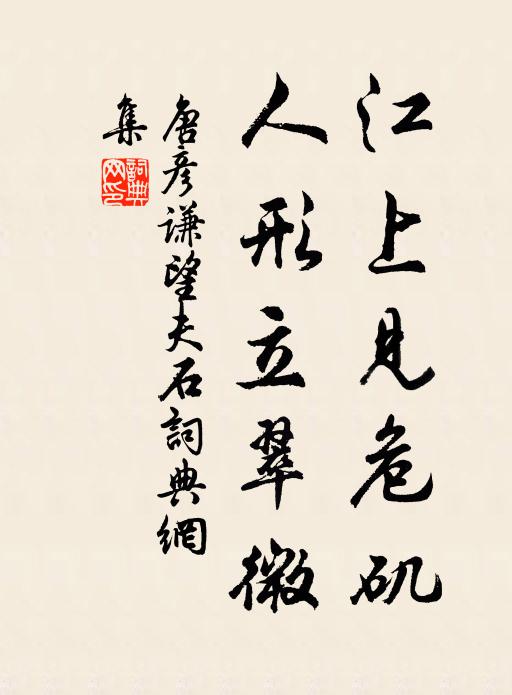 江上見危矶
人形立翠微
唐彦谦望夫石詞典網
集
詞典
网印